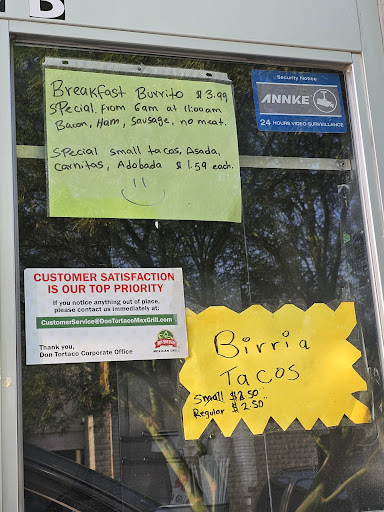 B
Breakfast Burrito $3.99
Special from 6am at 11:00am
Bacon, Ham, Sausage, no meat.
Special small tacos, Asada,
Carnitas, Adobada $1.59 each.
Security Notice
ANNKE
24 HOURS VIDEO SURVEILLANCE
CUSTOMER SATISFACTION
IS OUR TOP PRIORITY
If you notice anything out of place,
please contact us immediately at:
CustomerService@DonTortacoMexGrill.com
Thank you,
Don Tortaco Corporate Office
MEXICAN GRILL
Birria
Tacos
Small $1.50
Regular $2.50